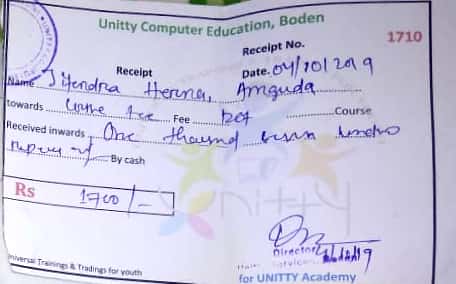 Unitty Computer Education, Boden
Receipt No. 1710
Receipt
Date. 04/10/2019
Name Jitendra Herna, Amguda
towards Course fee Fee DCA Course
Received inwards One thousand seven hundred
rupees By cash
Rs 1700/-
Director
Universal Trainings & Tradings for youth
for UNITTY Academy
UNITTY